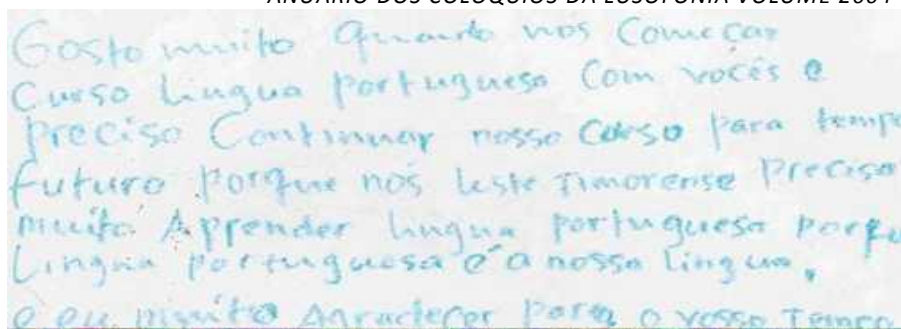 ANUÁRIO DOS COLÓQUIOS DA LUSOFONIA VOLUME 2004
Gosto muito Quando nos Começar
Curso Lingua portuguesa Com vocês e
Preciso Continuar nosso Curso para tempo
futuro porque nós leste Timorense Preciso
muito Apprender lingua portuguesa porqu
Lingua portuguesa é a nossa lingua,
e eu muito Agradecer para o vosso Tempo